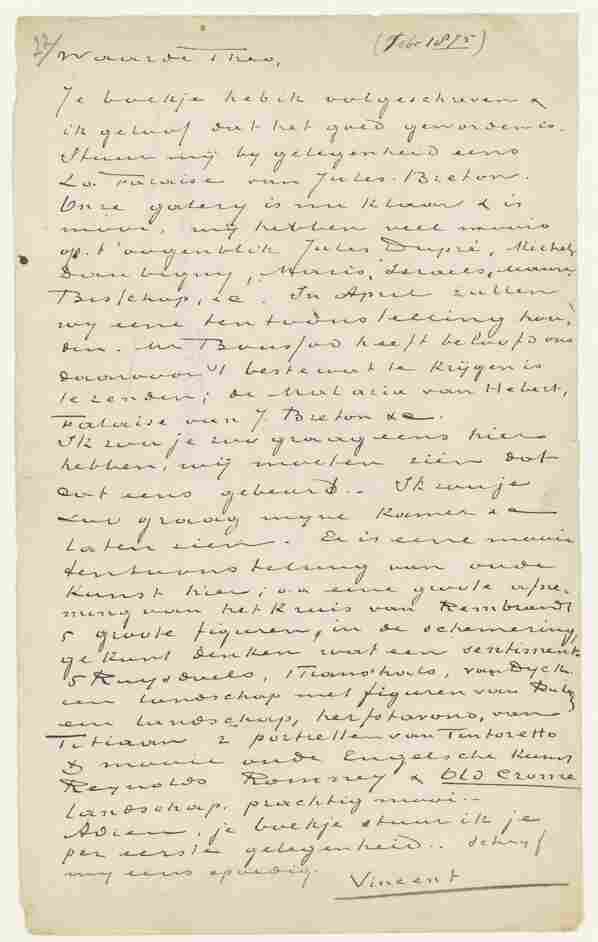 (Febr 1875)
Waarde Theo,
Je boekje heb ik volgeschreven &
ik geloof dat het goed geworden is.
Stuur mij bij gelegenheid eens
La Falaise van Jules Breton.
Onze galery is nu klaar & is
mooi, wij hebben veel moois
op 't oogenblik Jules Dupré, Michel,
Daubigny, Maris, Israels, Mauve,
Bisschop, &c. In April zullen
wij eene tentoonstelling hou,
den. Mr Boussod heeft beloofd ons
daarvoor 't beste wat te krijgen is
te zenden; de Malaria van Hebert,
Falaise van J. Breton &c.
Ik zou je zoo graag eens hier
hebben, wij moeten zien dat
dat eens gebeurd.. Ik zou je
zoo graag mijne kamer &c
laten zien. Er is eene mooie
tentoonstelling van oude
kunst hier; o.a. eene groote afne-
ming van het Kruis van Rembrandt
5 groote figuren, in de schemering,
ge kunt denken wat een sentiment.
5 Ruysdaels, 1 Frans Hals, van Dyck.
een landschap met figuren van Rub.
een landschap, herfstavond, van
Titiaan 2 portretten van Tintoretto
& mooie oude Engelsche kunst
Reynolds Romney & Old Crome
landschap. prachtig mooi..
Adieu, je boekje stuur ik je
per eerste gelegenheid.. Schrijf
mij eens spoedig.
Vincent